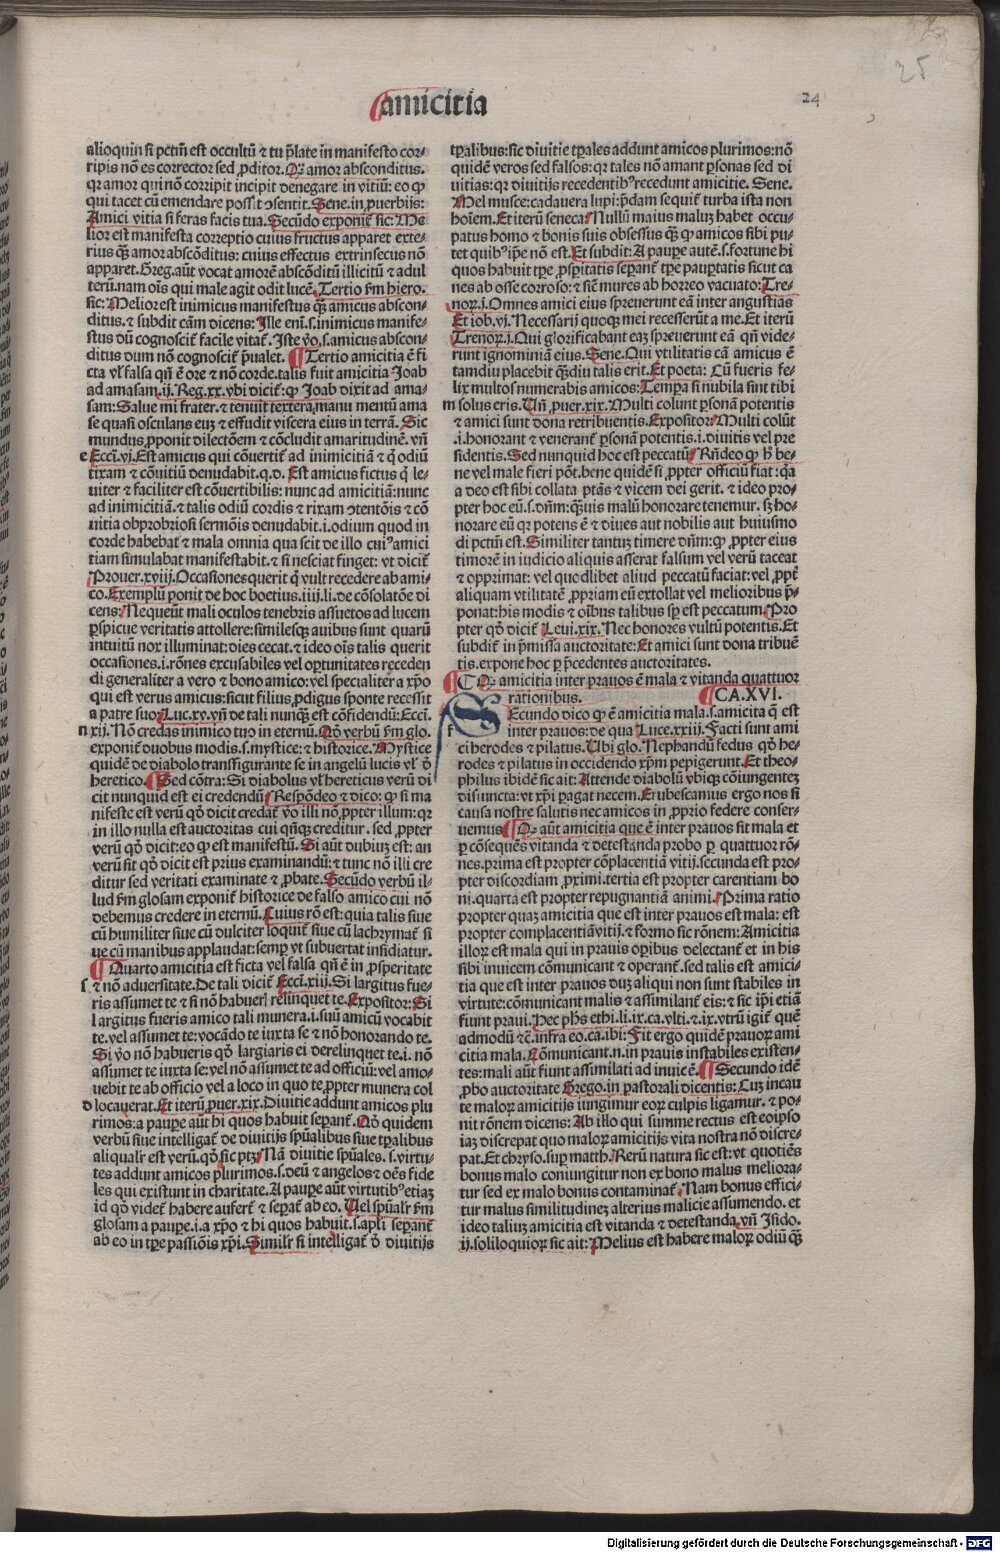 amicitia
24
25
alioquin si pctm̄ est occultū ⁊ tu p̄late in manifesto cor-
ripis nō es corrector sed ꝓditor. Q2 amor absconditus.
qr amor qui nō corripit incipit denegare in vitiū: eo ꝙ
qui tacet cū emendare possit ꝯsentit. Sene. in ꝓuerbijs:
Amici vitia si feras facis tua. Secūdo exponit̄ sic: Me
lior est manifesta correptio cuius fructus apparet exte-
rius q̄ꝫ amor abscōditus: cuius effectus extrinsecus nō
apparet. Greg. aūt vocat amorē abscōditū illicitū ⁊ adul
terū. nam oīs qui male agit odit lucē. Tertio ẜm hiero.
sic: Melior est inimicus manifestus q̄ꝫ amicus abscon-
ditus. ⁊ subdit cām dicens: Ille enī. s. inimicus manife-
stus dū cognoscit̄ facile vitat̄. Iste v̄o. s. amicus abscon-
ditus dum nō cognoscit̄ p̄ualet. Tertio amicitia ē fi
cta vl̓ falsa qn̄ ē ore ⁊ nō corde. talis fuit amicitia Joab
ad amasam. ij. Reg. xx. vbi dicit̄: ꝙ Joab dixit ad ama-
sam: Salue mi frater. ⁊ tenuit textera manu mentū ama
se quasi osculans euꝫ ⁊ effudit viscera eius in terrā. Sic
mundus ꝓponit dilectōem ⁊ cōcludit amaritudinē. vn̄
e
Ecc̄i. vj. Est amicus qui cōuertit̄ ad inimicitiā ⁊ q̄ odiū
rixam ⁊ cōuitiū denudabit. q. d. Est amicus fictus q̄ le-
uiter ⁊ faciliter est cōuertibilis: nunc ad amicitiā: nunc
ad inimicitiā. ⁊ talis odiū cordis ⁊ rixam ꝯtentōis ⁊ cō
uitia obprobriosi sermōis denudabit. i. odium quod in
corde habebat ⁊ mala omnia qua scit de illo cui⁹ amici
tiam simulabat manifestabit. ⁊ si nesciat finget: vt dicit̄
Prouer. xviij. Occasiones querit q̄ vult recedere ab ami-
co. Exemplū ponit de hoc boetius. iiij. li. de cōsolatōe di
cens: Nequeūt mali oculos tenebris assuetos ad lucem
ꝑspicue veritatis attollere: similesqꝫ auibus sunt quarū
intuitū nox illuminat: dies cecat. ⁊ ideo oīs talis querit
occasiones. i. rōnes excusabiles vel oꝑtunitates receden
di generaliter a vero ⁊ bono amico: vel specialiter a xp̄o
qui est verus amicus: sicut filius ꝓdigus sponte recessit
a patre suo. Luc. xv. vn̄ de tali nunq̄ꝫ est cōfidendū: Ecci.
n
xij. Nō credas inimico tuo in eternū. Qō verbū ẜm glo.
exponit̄ duobus modis. s. mystice: ⁊ historice. Mystice
quidē de diabolo transfigurante se in angelū lucis vl̓ ō
heretico. Sed cōtra: Si diabolus vl̓ hereticus verū di
cit nunquid est ei credendū. Respōdeo ⁊ dico: ꝙ si ma
nifeste est verū qō dicit credat̄ v̄o illi nō ꝓpter illum: qr
in illo nulla est auctoritas cui qn̄qꝫ creditur. sed ꝓpter
verū qō dicit: eo ꝙ est manifestū. Si aūt dubiuꝫ est: an
verū sit qō dicit est prius examinandū: ⁊ tunc nō illi cre
ditur sed veritati examinate ⁊ ꝓbate. Secūdo verbū il-
lud ẜm glosam exponit̄ historice de falso amico cui nō
debemus credere in eternū. Cuius rō est: quia talis siue
cū humiliter siue cū dulciter loquit̄ siue cū lachrymat̄ si
ue cū manibus applaudat: semꝑ vt subuertat insidiatur.
Quarto amicitia est ficta vel falsa qn̄ ē in ꝓsperitate
s
⁊ nō aduersitate. De tali dicit̄ Ecci. xiij. Si largitus fue-
ris assumet te ⁊ si nō habueris relinquet te. Expositor: Si
largitus fueris amico tali munera. i. suū amicū vocabit
te. vel assumet te: vocādo te iuxta se ⁊ nō honorando te.
Si v̄o nō habueris qō largiaris ei derelinquet te. i. nō
assumet te iuxta se: vel nō assumet te ad officiū: vel amo-
uebit te ab officio vel a loco in quo te ꝓpter munera col
d
locauerat. Et iterū ꝓuer. xix. Diuitie addunt amicos plu
rimos: a pauꝑe aūt hi quos habuit seꝑant̄. Qō quidem
verbū siue intelligat̄ de diuitijs spūalibus siue tꝑalibus
aliqualr̄ est verū. qō sic ptꝫ. Nā diuitie spūales. s. virtu-
tes addunt amicos plurimos. s. deū ⁊ angelos ⁊ oēs fide
les qui existunt in charitate. A pauꝑe aūt virtutib⁹ etiaꝫ
id qō videt̄ habere aufert̄ ⁊ seꝑat̄ ab eo. Uel spūalr̄ ẜm
glosam a pauꝑe. i. a xp̄o ⁊ hi quos habuit. s. apl̓i seꝑant̄
ab eo in tꝑe passiōis xp̄i. Similr̄ si intelligat̄ ō diuitijs
tꝑalibus: sic diuitie tꝑales addunt amicos plurimos: nō
quidē veros sed falsos: qr tales nō amant ꝑsonas sed di
uitias: qr diuitijs recedentib⁹ recedunt amicitie. Sene.
Mel musce: cadauera lupi: p̄dam sequit̄ turba ista non
hoīem. Et iterū seneca: Nullū maius maluꝫ habet occu
patus homo ⁊ bonis suis obsessus q̄ꝫ ꝙ amicos sibi pu-
tet quib⁹ ip̄e nō est. Et subdit: A pauꝑe autē. s. fortune hi
quos habuit tꝑe ꝓsꝑitatis seꝑant̄ tꝑe pauꝑtatis sicut ca
nes ab osse corroso: ⁊ sic̄ mures ab horreo vacuato: Tre-
noꝝ. j. Omnes amici eius spreuerunt eā inter angustias
Et iob. vj. Necessarij quoqꝫ mei recesserūt a me. Et iterū
Trenoꝝ. j. Qui glorificabant eaꝫ spreuerunt eā qn̄ vide-
runt ignominiā eius. Sene. Qui vtilitatis cā amicus ē
tamdiu placebit q̄ꝫdiu talis erit. Et poeta: Cū fueris fe-
lix multos numerabis amicos: Temꝑa si nubila sunt tibi
m
solus eris. Un̄ ꝓuer. xix. Multi colunt ꝑsonā potentis
⁊ amici sunt dona retribuentis. Expositor: Multi colūt
.i. honorant ⁊ venerant̄ ꝑsonā potentis. i. diuitis vel pre
sidentis. Sed nunquid hoc est peccatū. Rn̄deo ꝙ h̓ be-
ne vel male fieri pōt. bene quidē si ꝓpter officiū fiat: q̄a
a deo est sibi collata ptās ⁊ vicem dei gerit. ⁊ ideo pro-
pter hoc eū. s. dn̄m: q̄ꝫuis malū honorare tenemur. sꝫ ho-
norare eū qr potens ē ⁊ diues aut nobilis aut huiusmo
di pctm̄ est. Similiter tantuꝫ timere dn̄m: ꝙ ꝓpter eius
timorē in iudicio aliquis asserat falsum vel verū taceat
⁊ opprimat: vel quodlibet aliud peccatū faciat: vel ꝓpt̄
aliquam vtilitatē ꝓpriam eū extollat vel melioribus p̄-
ponat: his modis ⁊ oībus talibus sꝑ est peccatum. Pro
pter qō dicit̄ Leui. xix. Nec honores vultū potentis. Et
subdit̄ in p̄missa auctoritate: Et amici sunt dona tribuē
tis. expone hoc ꝑ p̄cedentes auctoritates.
Q2 amicitia inter prauos ē mala ⁊ vitanda quattuor
rationibus. CA. XVI.
f
SEcundo dico ꝙ ē amicitia mala. s. amicita q̄ est
inter prauos: de qua Luce. xxiij. Facti sunt ami
ci herodes ⁊ pilatus. Ubi glo. Nephandū fedus qō he-
rodes ⁊ pilatus in occidendo xp̄m pepigerunt. Et theo-
philus ibidē sic ait: Attende diabolū vbiqꝫ cōiungentez
disiuncta: vt xp̄i ꝑagat necem. Erubescamus ergo nos si
causa nostre salutis nec amicos in ꝓprio federe conser-
uemus. Q2 aūt amicitia que ē inter prauos sit mala et
ꝑ cōsequēs vitanda ⁊ detestāda probo ꝑ quattuor rō-
nes. prima est propter cōplacentiā vitij. secunda est pro-
pter discordiam ꝓximi. tertia est propter carentiam bo
ni. quarta est propter repugnantiā animi. Prima ratio
propter quaꝫ amicitia que est inter prauos est mala: est
propter complacentiā vitij. ⁊ formo sic rōnem: Amicitia
illoꝝ est mala qui in prauis oꝑibus delectant̄ et in his
sibi inuicem cōmunicant ⁊ operant̄. sed talis est amici-
tia que est inter prauos duꝫ aliqui non sunt stabiles in
virtute: cōmunicant malis ⁊ assimilant̄ eis: ⁊ sic ip̄i etiā
fiunt praui. Hec ph̄s ethi. li. ix. ca. vlti. ⁊. ix. vtrū igit̄ quē
admodū ⁊c̄. infra eo. ca. ibi: Fit ergo quidē prauoꝝ ami
citia mala. Cōmunicant. n. in prauis instabiles existen-
tes: mali aūt fiunt assimilati ad inuicē. Secundo idē
ꝓbo auctoritate Grego. in pastorali dicentis: Cuꝫ incau
te maloꝝ amicitijs iungimur eoꝝ culpis ligamur. ⁊ po-
nit rōnem dicens: Ab illo qui summe rectus est eoipso
iaꝫ discrepat quo maloꝝ amicitijs vita nostra nō discre-
pat. Et chryso. suꝑ matth. Rerū natura sic est: vt quotiēs
bonus malo coniungitur non ex bono malus meliora-
tur sed ex malo bonus contaminat̄. Nam bonus effici-
tur malus similitudineꝫ alterius malicie assumendo. et
ideo taliuꝫ amicitia est vitanda ⁊ detestanda. vn̄ Isido.
ij. soliloquioꝝ sic ait: Melius est habere maloꝝ odiū q̄ꝫ
Digitalisierung gefördert durch die Deutsche Forschungsgemeinschaft - DFG